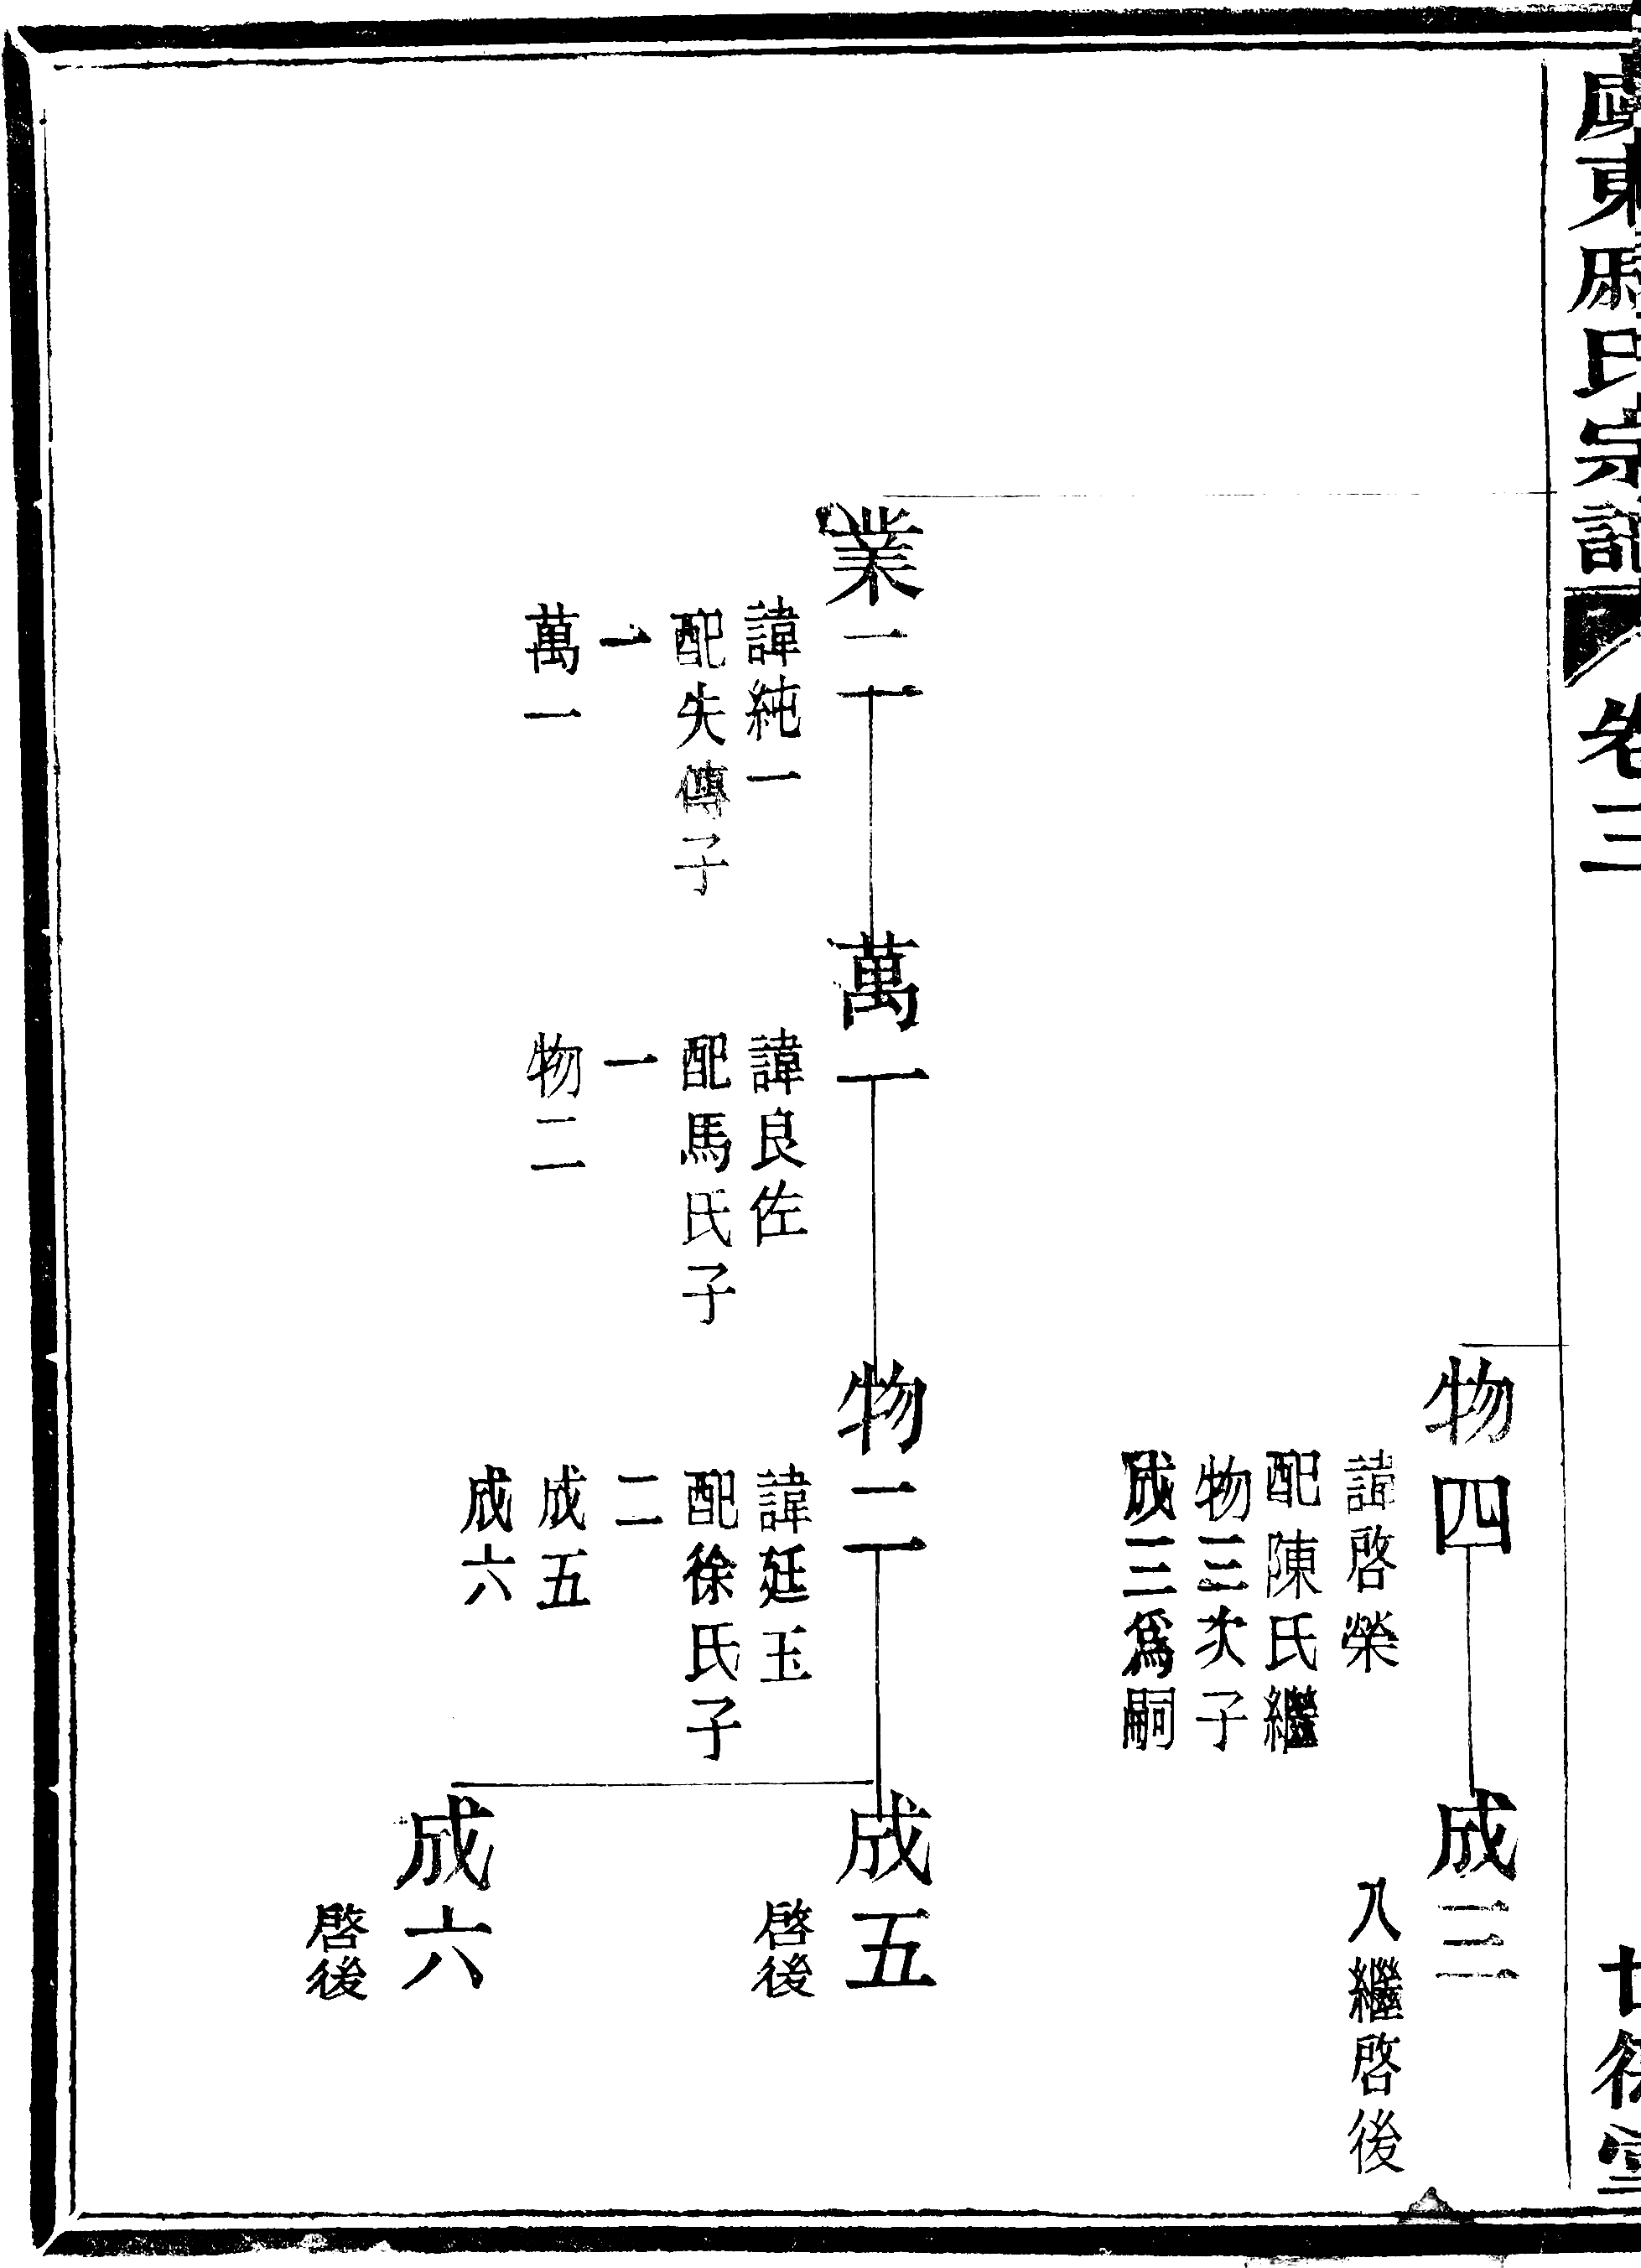 東
氏宗譜
卷三
物四
諱啓榮
配陳氏繼
物三次子
成三爲嗣
成三
入繼啓後
業二
諱純一
配失傳子
一
萬一
萬一
諱良佐
配馬氏子
一
物二
物二
諱廷玉
配徐氏子
二
成五
成六
成五
啓後
成六
啓後